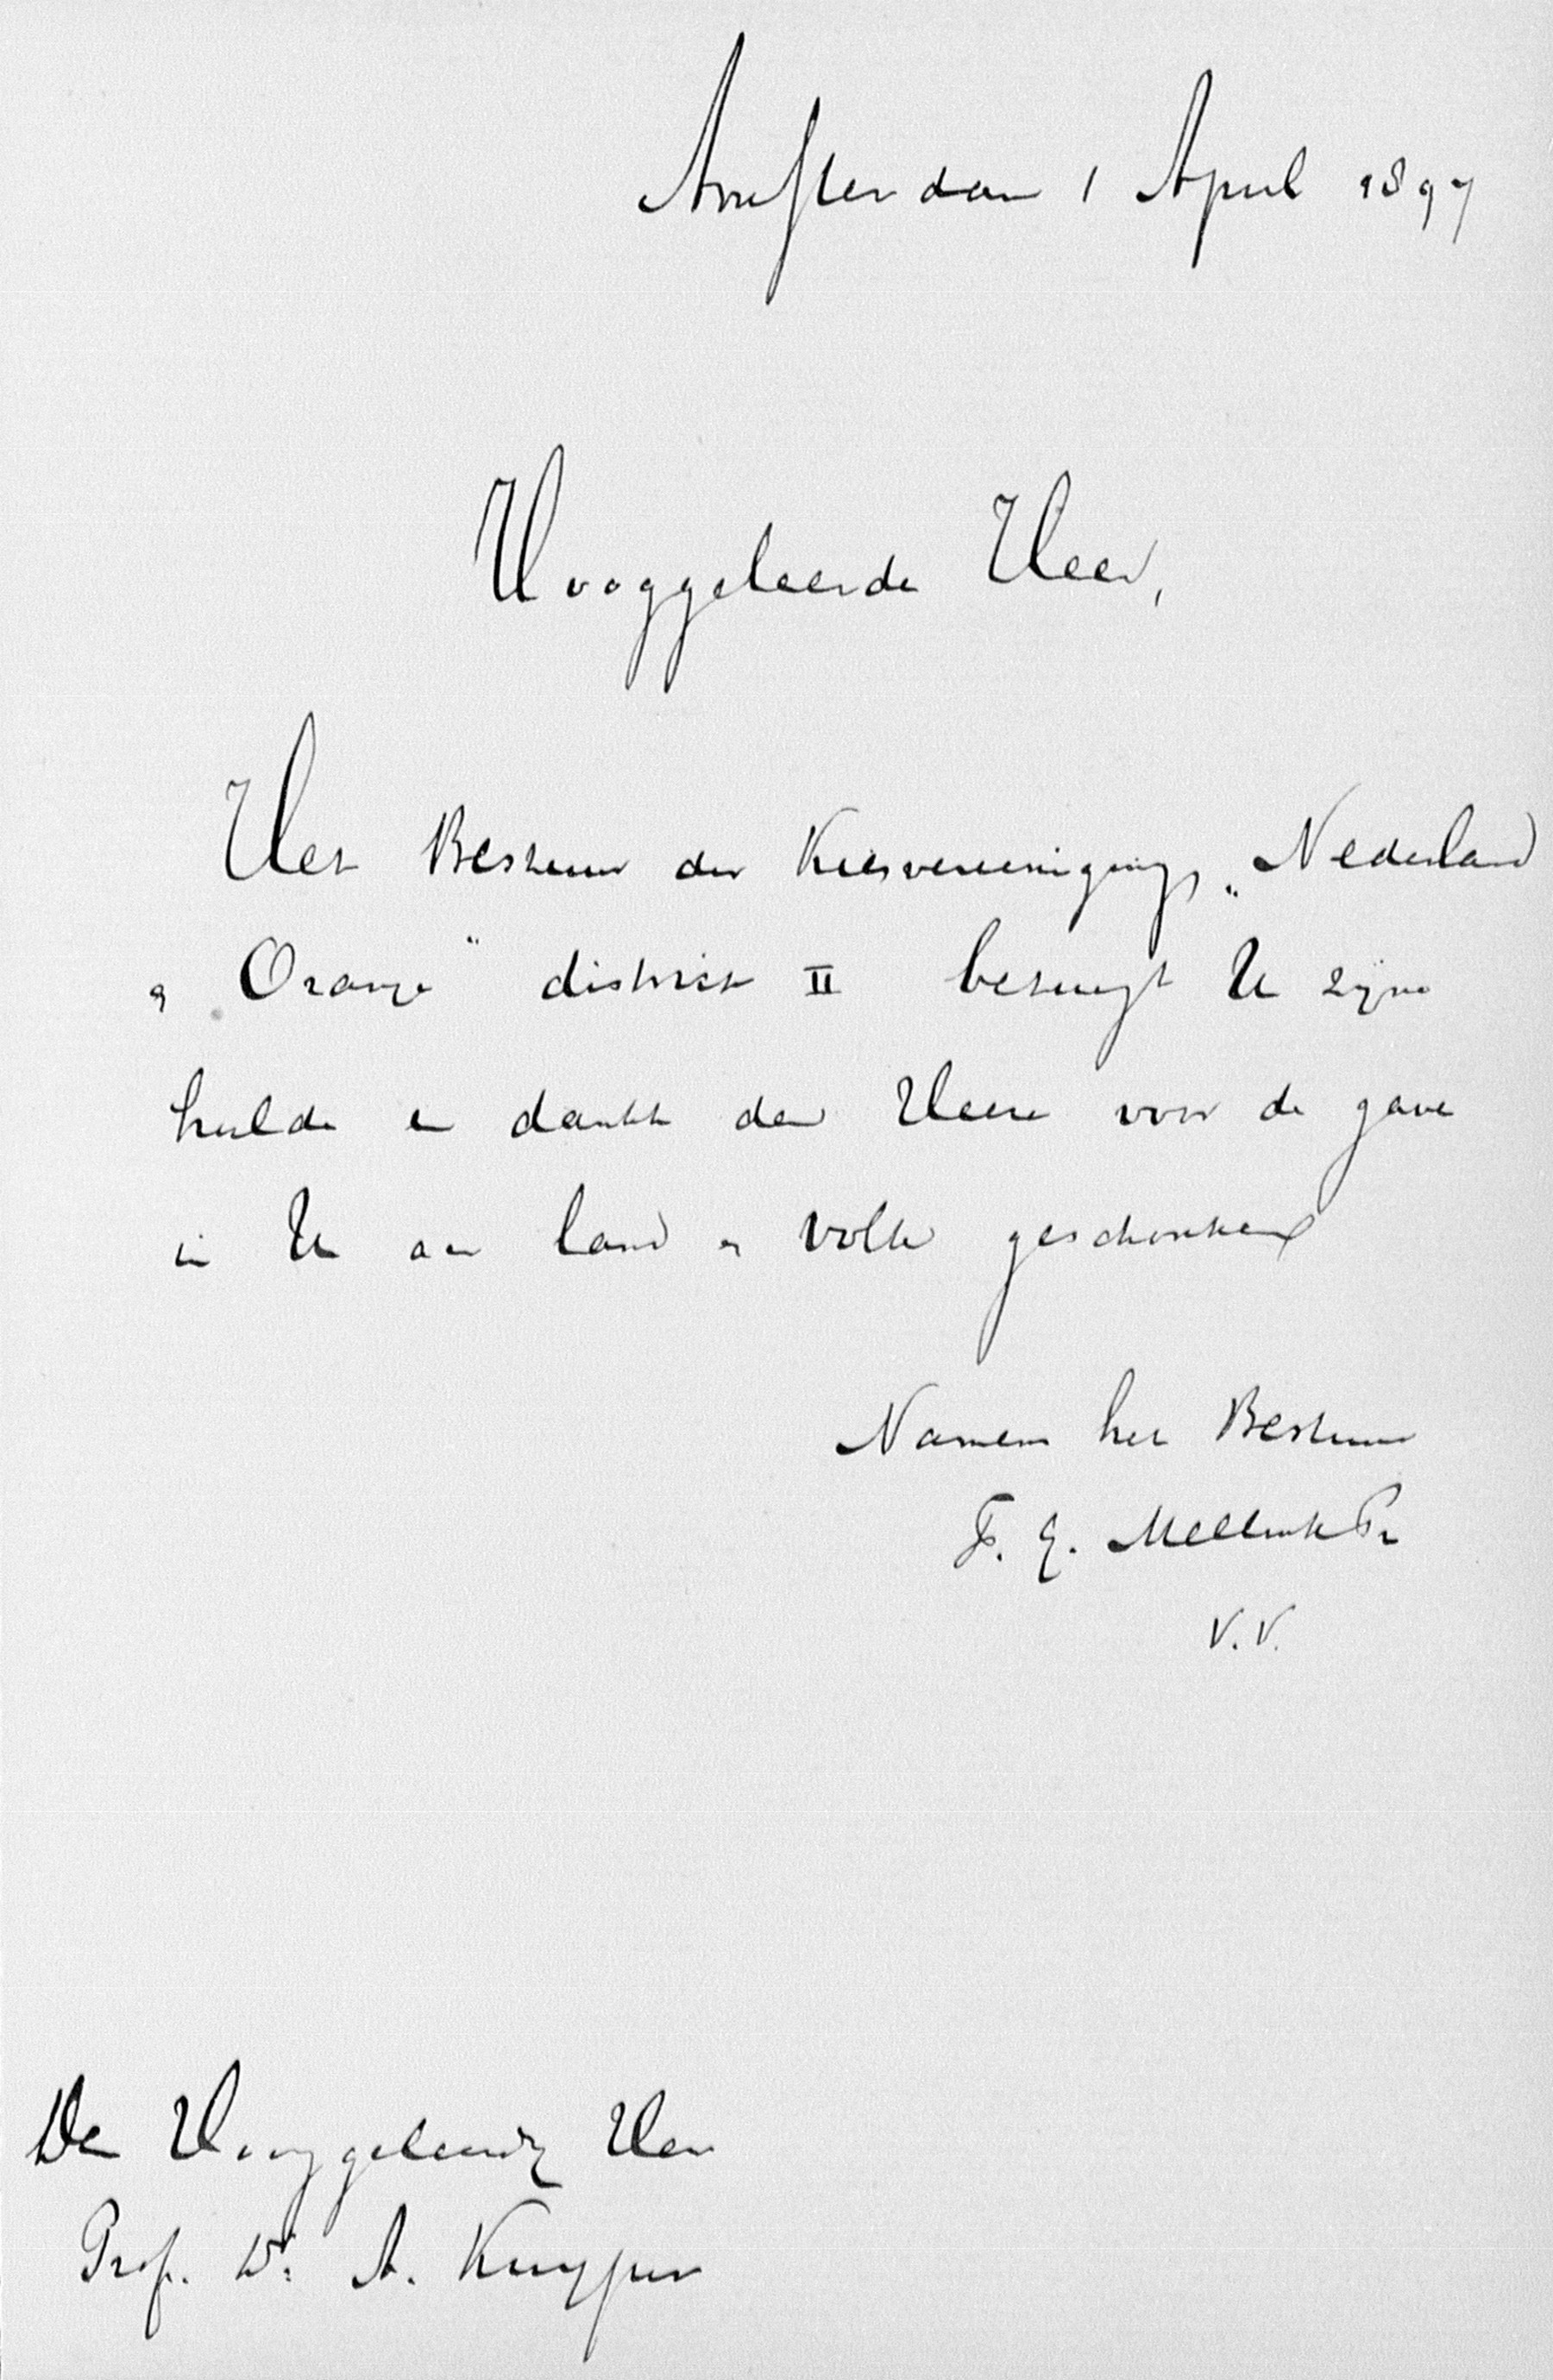 Amsterdam 1 April 1897
Hooggeleerde Heer,
Het Bestuur der Kiesvereeniging „Nederland
en Oranje" district II betuigt U zijne
hulde en dankt den Heere voor de gave
in U aan land en volk geschonken
Namens het Bestuur
F. E. Mellink Pz
V.V.
Den Hooggeleerde Heer
Prof. Dr. A. Kuyper